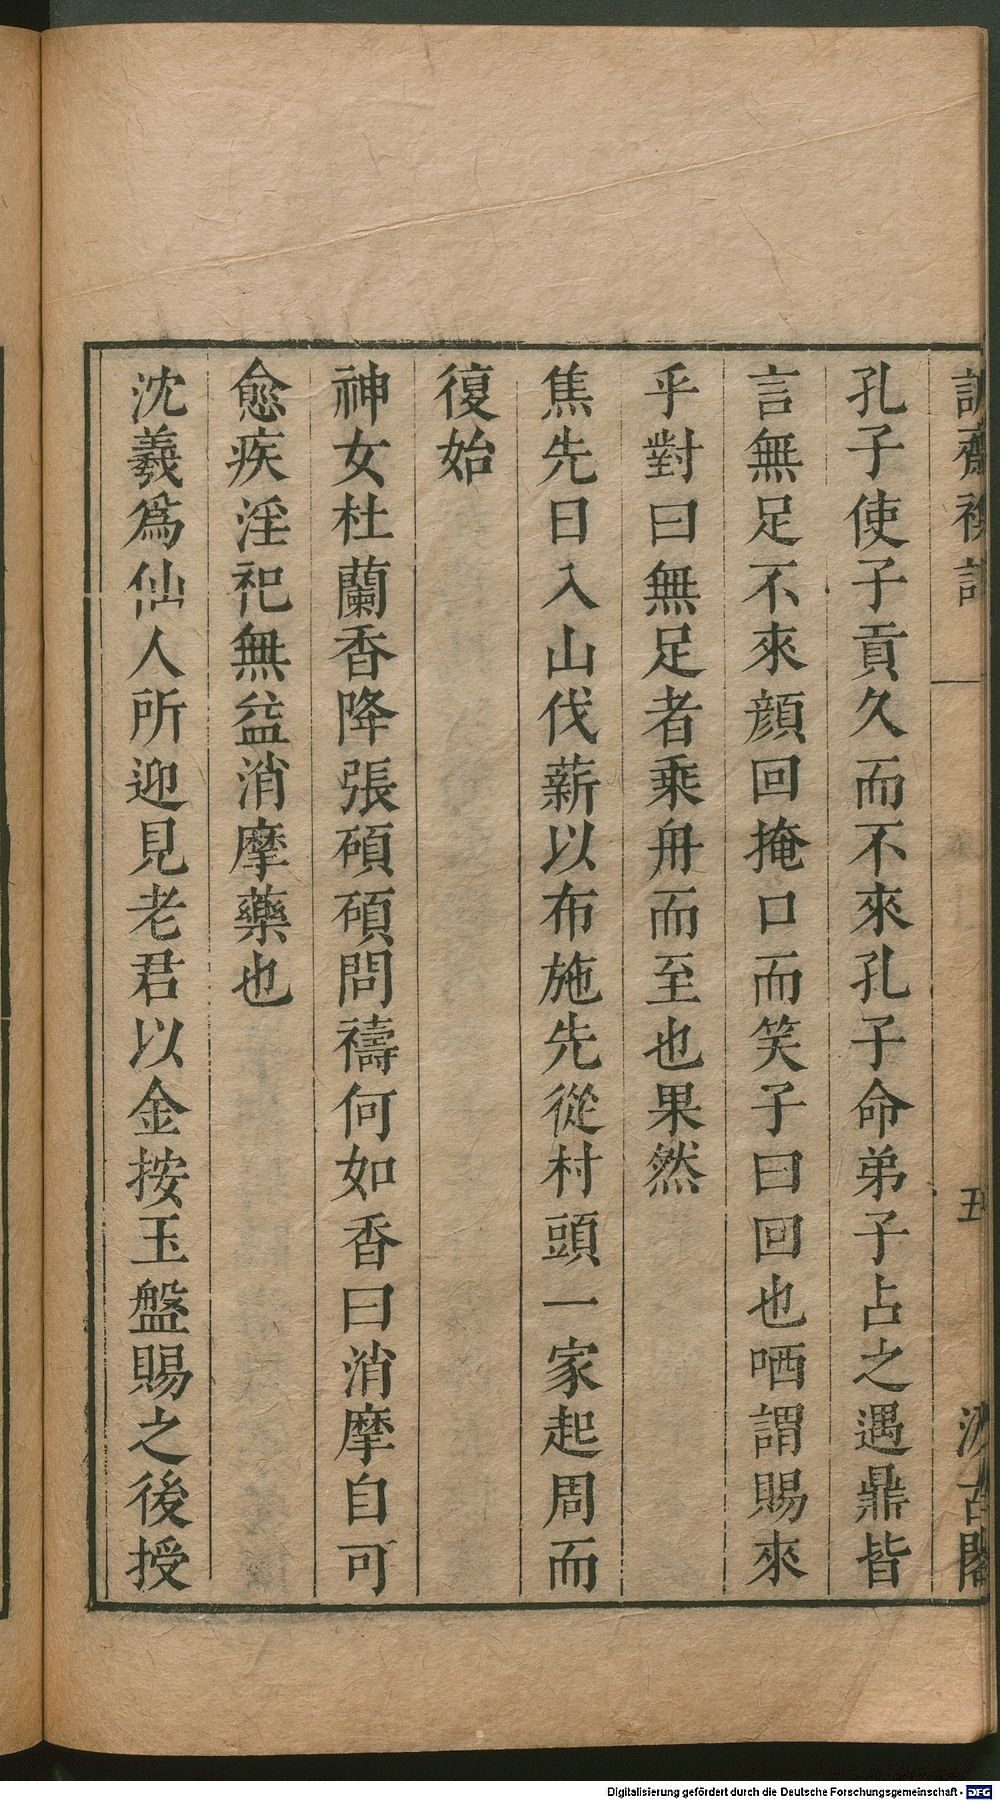 孔子使子貢久而不來孔子命弟子占之遇鼎皆
言無足不來顔回掩口而笑子曰回也哂謂賜來
乎對曰無足者乘舟而至也果然
焦先日入山伐薪以布施先從村頭一家起周而
復始
神女杜蘭香降張碩碩問禱何如香曰消摩自可
愈疾淫祀無益消摩藥也
沈羲爲仙人所迎見老君以金按玉盤賜之後授
五
古閣
Digitalisierung gefördert durch die Deutsche Forschungsgemeinschaft - DFG